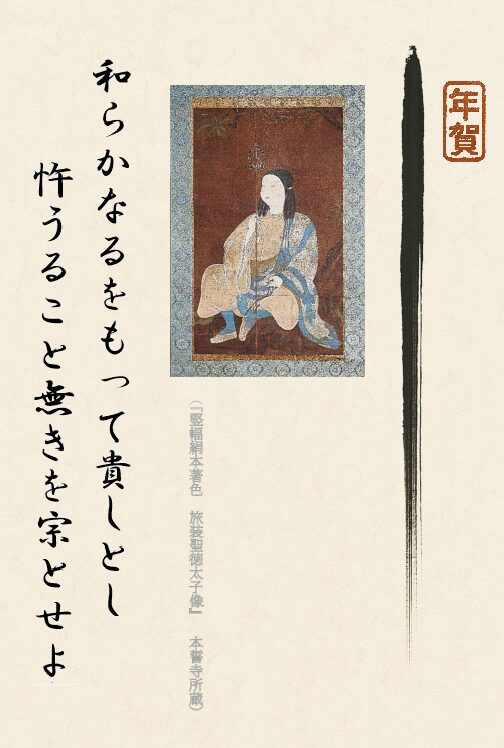 年賀
和らかなるをもって貴しとし
忤うること無きを宗とせよ
(『竪幅絹本著色　旅装聖徳太子像』　本誓寺所蔵)